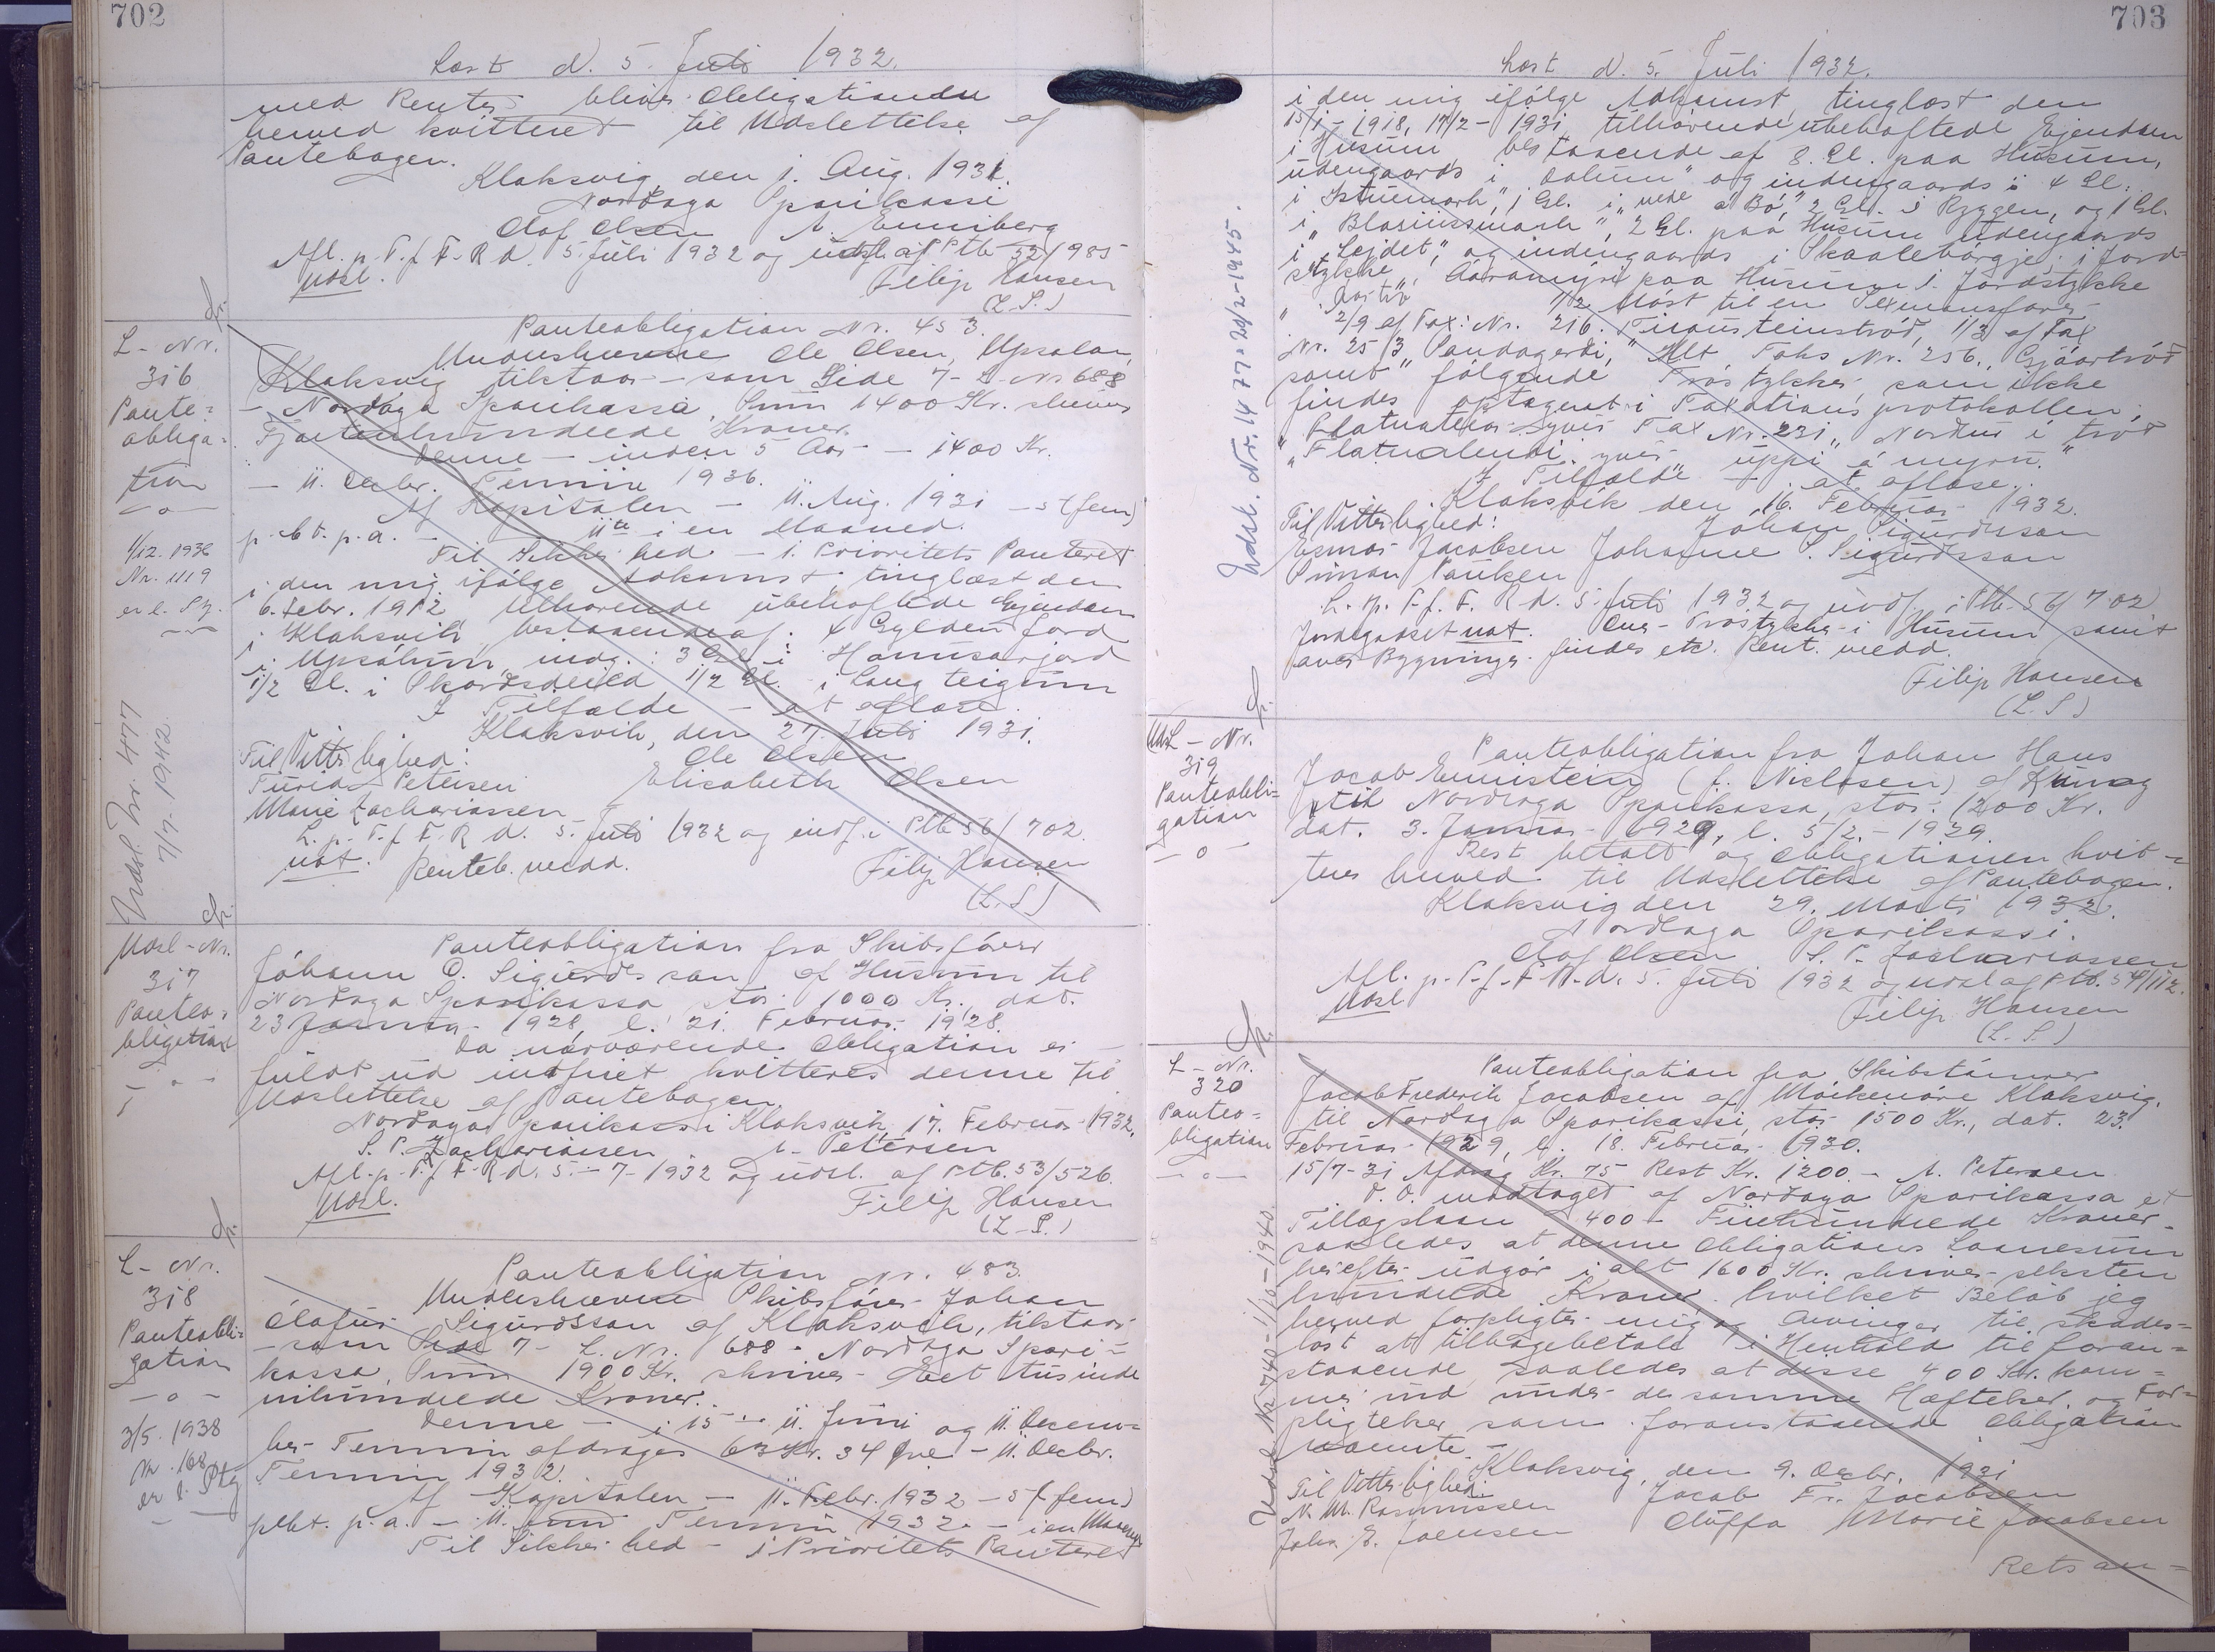 702
Læst d. 5. Juli 1932.
med Renter bliver Obligationen
herved kvitteret til Udslettelse af
Pantebogen.
Klaksvig den 1. Aug. 1931.
Nordoya Sparikassi
Olaf Olsen A. Enniberg
Afl. p. T. f. F. R d. 5. Juli 1932 og udsl. af Ptb 52/985
Udsl. Filip Hansen
(L.S.)
L-Nr.
316
Pante-
obliga-
tion
1/12. 1936
Nr. 1119
er l. Ptg.
Udsl. Nr. 477
7/7-1942
Panteobligation Nr. 453.
Undershrevne Ole Olsen, Upsalar,
Klaksvig tilstaar - som Side 7- L-Nr 688
- Nordoya Sparikassa, Sum 1400 Kr. skriver
Fjortenhundrede Kroner.
Denne - inden 5 Aar - 1400 Kr.
- 11. Decbr. Termin 1936.
Af Kapitalen - 11. Aug. 1931 - 5 (fem)
p. Ct. p. a. - 11te i en Maaned.
Til Sikkerhed - 1. Prioritets Panteret
i den mig ifølge Adkomst tinglæst den
6. Febr. 1912 tilhørende ubehæftede Ejendom
i Klaksvik bestaaende af: 4 Gylden Jord
i Upsølum, indg.: 3 Gl. i Hannsarjord
1/2 Gl. i Skordsdeild 1/2 Gl. i Langteigum
I Tilfælde - at aflæse.
Klaksvik, den 27. Juli 1931.
Til Vitterlighed: Ole Olsen
Turid Petersen Elisabeth Olsen
Marie Zachariassen
L. p. T. f. F. R d. 5. Juli 1932 og indf. i Ptb 56/702.
not. Renteb. vedd. Filip Hansen
(L.S)
Udsl-Nr.
317
Panteo-
bligation
Panteobligation fra Skibsfører
Jóhann O. Sigurdsson af Húsum til
Nordoya Sparikassa stor 1000 Kr., dat.
23 Januar 1928, l. 21. Februar 1928.
Da nærværende Obligation er
fuldt ud indfriet kvitteres denne til
Udslettelse af Pantebogen.
Nordoya Sparikassi Klaksvik, 17. Februar 1932.
S. P. Zachariasen A. Pettersen
Afl. p. T. f. F. R d. 5.-7-1932 og udsl. af Ptb. 53/526.
Udsl. Filip Hansen
(L-S.)
L-Nr.
318
Panteobli-
gation
3/5. 1938
Nr. 168
er l. Ptg
Panteobligation Nr. 483.
Undershrevne Skibsfører Johan
Ólafur Sigurdsson af Klaksvik, tilstaar
- som Side 7- L. Nr. 688 - Nordoya Spari-
kassa, Sum 1900 Kr. skriver - Eet tusinde
nihundrede Kroner.
Denne - i 15 11. Juni og 11. Decem-
ber Termin afdrages 63 Kr. 34 Øre - 11. Decbr.
Termin 1932.
Af Kapitalen - 11. Febr. 1932 - 5 (fem)
pCt. p. a. - 11. Juni Termin 1932. - i en Maaned
Til Sikkerhed - 1 Prioritets Panteret
703
Læst d. 5. Juli 1932.
i den mig ifølge Adkomst, tinglæst den
15/1-1918, 17/2-1931 tilhørende ubehæftede Ejendom
i Húsum bestaaende af 8. Gl. paa Húsum,
udengaards i Dølum" og indengaards i: 4 Gl.
i Istúmørk", 1 Gl. i "niðri á Bø", 2 Gl. i Ryggen, og 1 Gl.
i "Blasiussmørk", 2 Gl. paa Húsum udengaards
i "Leidet", og indengaards i Skaalebørgje, i Jord-
stykke
1/2 Nøst til en Sexmansfarer
2/9 af Tax: Nr. 216.
Nr. 25
samt følgende Trøstykker som ikke
findes optaget i Taxationsprotokollen:
yvir Tax Nr. 231, Nordur i trød
yvir uppi á mýru."
I Tilfælde - at aflæse.
Klaksvík den 16. Februar 1932.
Til Vitterlighed: Jóhan Sigurdsson
Esmar Jacobsen Johanne P. Sigurdsson
Simon Pauken
L. p. T. f. F. R d. 5. Juli 1932 og indf. i Ptb. 56/702
Jordgodset not. Over Trøstykker i Húsum samt
over Bygninger findes etc. Rent. vedd.
Filip Hansen
(L.S)
Udsl. Nr. 1477 - 20/2-1945.
Udsl-Nr.
319
Panteobli-
gation
Panteobligation fra Johan Hans
Jacob Ennistein (f. Niclasen) af Kunoy
til Nordoya Sparikassa, stor: 1200 Kr.
dat. 3. Januar 1929, l. 5/2.-1929.
Rest betalt og Obligationen kvit-
teres herved til Udslettelse af Pantebogen.
Klaksvig den 29. Marts 1932.
Nordoya Sparikassi.
Olaf Olsen S. P. Zachariassen
Afl. p. T. f. F R. d. 5. Juli 1932 og udsl af Ptb. 54/112.
Udsl Filip Hansen
(L.S.)
L-Nr.
320
Panteo-
bligation
Udsl. Nr 740-1/10-1940.
Panteobligation fra Skibstømrer
Jacob Frederik Jacobsen af Klaksvig,
til Nordoya Sparikassi, stor 1500 Kr., dat. 23
Februar 1929, l. 18. Februar 1930.
15/7-31 Afdrag Kr. 75 Rest Kr. 1200.- A. Petersen
D. D. modtaget af Nordoya Sparikassa et
Tillægslaan 400 - Firehundrede Kroner -
saaledes at denne Obligations Laanesum
herefter udgør i alt 1600 Kr. skriver seksten
hundrede Kroner. hvilket Beløb jeg
herved forpligter mig og Arvinger til skades-
løst at tilbagebetale i Henhold til foran-
staaende saaledes at disse 400 Kr. kom-
mer ind under de samme Hæftelser og For-
pligtelser som foranstaaende Obligation
nævnte -
Klaksvig, den 9. Decbr. 1931
Til Vitterlighed: Jacob Fr. Jacobsen
N. M. Rasmussen Oluffa Marie Jacobsen
Johs. E. Joensen
Rets an-